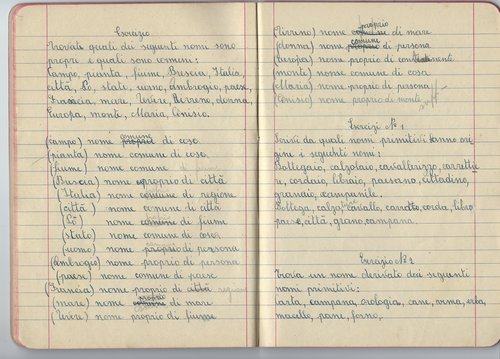 Esercizio
Trovati quali dei seguenti nomi sono
propri e quali sono comuni:
Campo, pianta, fiume, Brescia, Italia,
città, Pò, stato, uomo, Ambrogio, paese,
Francia, mare, Tevere, Tirreno, donna,
Europa, monte, Maria, Cenisio.
(campo) nome comune di cose
(pianta) nome comune di cose
(fiume) nome comune
(Brescia) nome proprio di città
(Italia) nome comune di regione
(città) nome comune di città
(Pò) nome comune di fiume
(stato) nome comune di cose
(uomo) nome proprio di persona
(Ambrogio) nome proprio di persona
(paese) nome comune di paese
(Francia) nome proprio di città regione
(mare) nome proprio comune di mare
(Tevere) nome proprio di fiume
(Tirreno) nome proprio comune di mare
(donna) nome comune proprio di persona
(Europa) nome proprio di continente
(monte) nome comune di cosa
(Maria) nome proprio di persona
(Cenisio) nome proprio di monte
Esercizi N° 1
Scrivi da quali nomi primitivi hanno ori
gine i seguenti nomi:
Bottegaio, calzolaio, cavallerizzo, carrettie
re, cordaio, libraio, paesano, cittadino,
granaio, campanile.
Bottega, calza, cavallo, carretto, corda, libro
paese, città, grano, campana.
Esercizio N° 2
Trova un nome derivato dai seguenti
nomi primitivi:
carta, campana, orologio, cane, arma, erba,
macello, pane, forno,